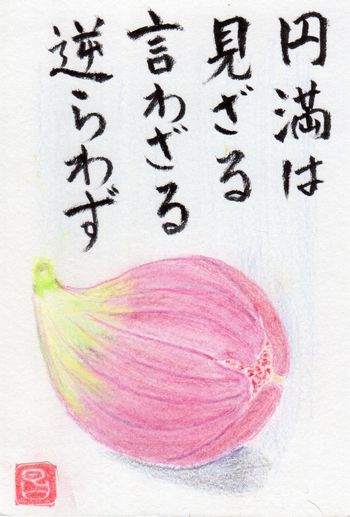 円満は
見ざる
言わざる
逆らわず